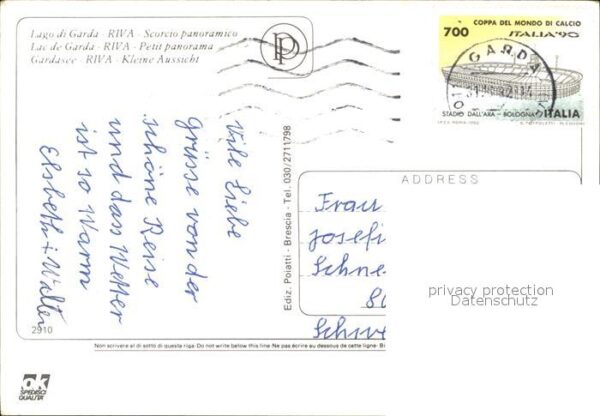 Lago di Garda - RIVA - Scorcio panoramico
Lac de Garda - RIVA - Petit panorama
Gardasee - RIVA - Kleine Aussicht
PP
700
COPPA DEL MONDO DI CALCIO
ITALIA '90
GARDA
STADIO DALL'ARA - BOLOGNA
ITALIA
Viele Liebe
Grüsse von der
schöne Reise
und das Wetter
ist so Warm
Elsbeth + Walter
Ediz. Poiatti - Brescia - Tel. 030/2711798
ADDRESS
Frau
Josefi
Schne
80
Schwe
privacy protection
Datenschutz
2910
Non scrivere al di sotto di questa riga. Do not write below this line - Ne pas écrire au dessous de cette ligne-
OK
SPEDISCI
QUALITA'